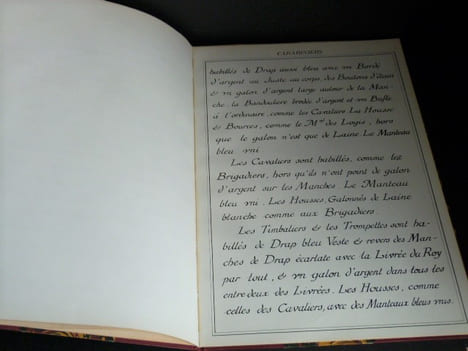 CARABINIERS
habillés de Drap aussi bleu avec un Bordé
d'argent au Juste au corps, des Boutons d'étain
& un galon d'argent large autour de la Man-
che: la Bandouliere brodée d'argent et un Bufle
à l'ordinaire, comme les Cavaliers. La Housse
& Bources, comme le Mal des Logis, hors
que le galon n'est que de Laine. Le Manteau
bleu uni.
Les Cavaliers sont habillés, comme les
Brigadiers, hors qu'ils n'ont point de galon
d'argent sur les Manches. Le Manteau
bleu uni. Les Housses, Galonnés de Laine
blanche comme aux Brigadiers
Les Timbaliers & les Trompettes sont ha-
billés de Drap bleu Veste & revers des Man-
ches de Drap écarlate avec la Livrée du Roy
par tout, & un galon d'argent dans tous les
entre deux des Livrées. Les Housses, comme
celles des Cavaliers, avec des Manteaux bleus unis.